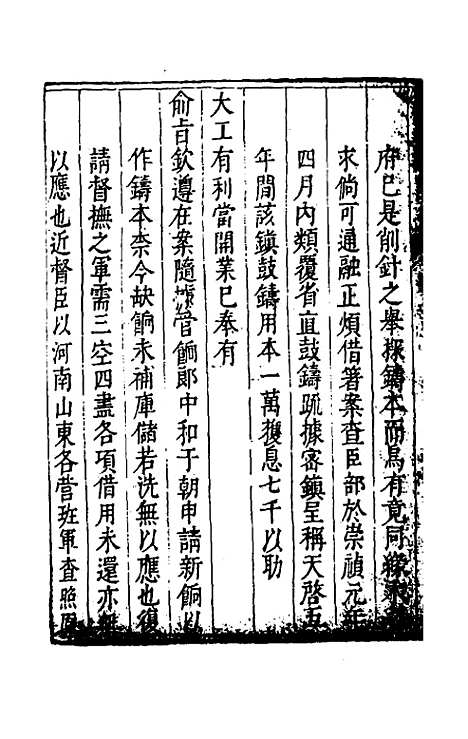 府已是削針之舉探鑄本而烏有竟同緣木
求倘可通融正煩借箸案查臣部於崇禎元年
四月內類覆省直鼓鑄疏據密鎮呈稱天啓五
年間該鎮鼓鑄用本一萬獲息七千以助
大工有利當開業已奉有
俞旨欽遵在案隨據管餉郎中和于朝申請新餉以
作鑄本柰今缺餉未補庫儲若洗無以應也復
請督撫之軍需三空四盡各項借用未還亦無
以應也近督臣以河南山東各營班軍查照原